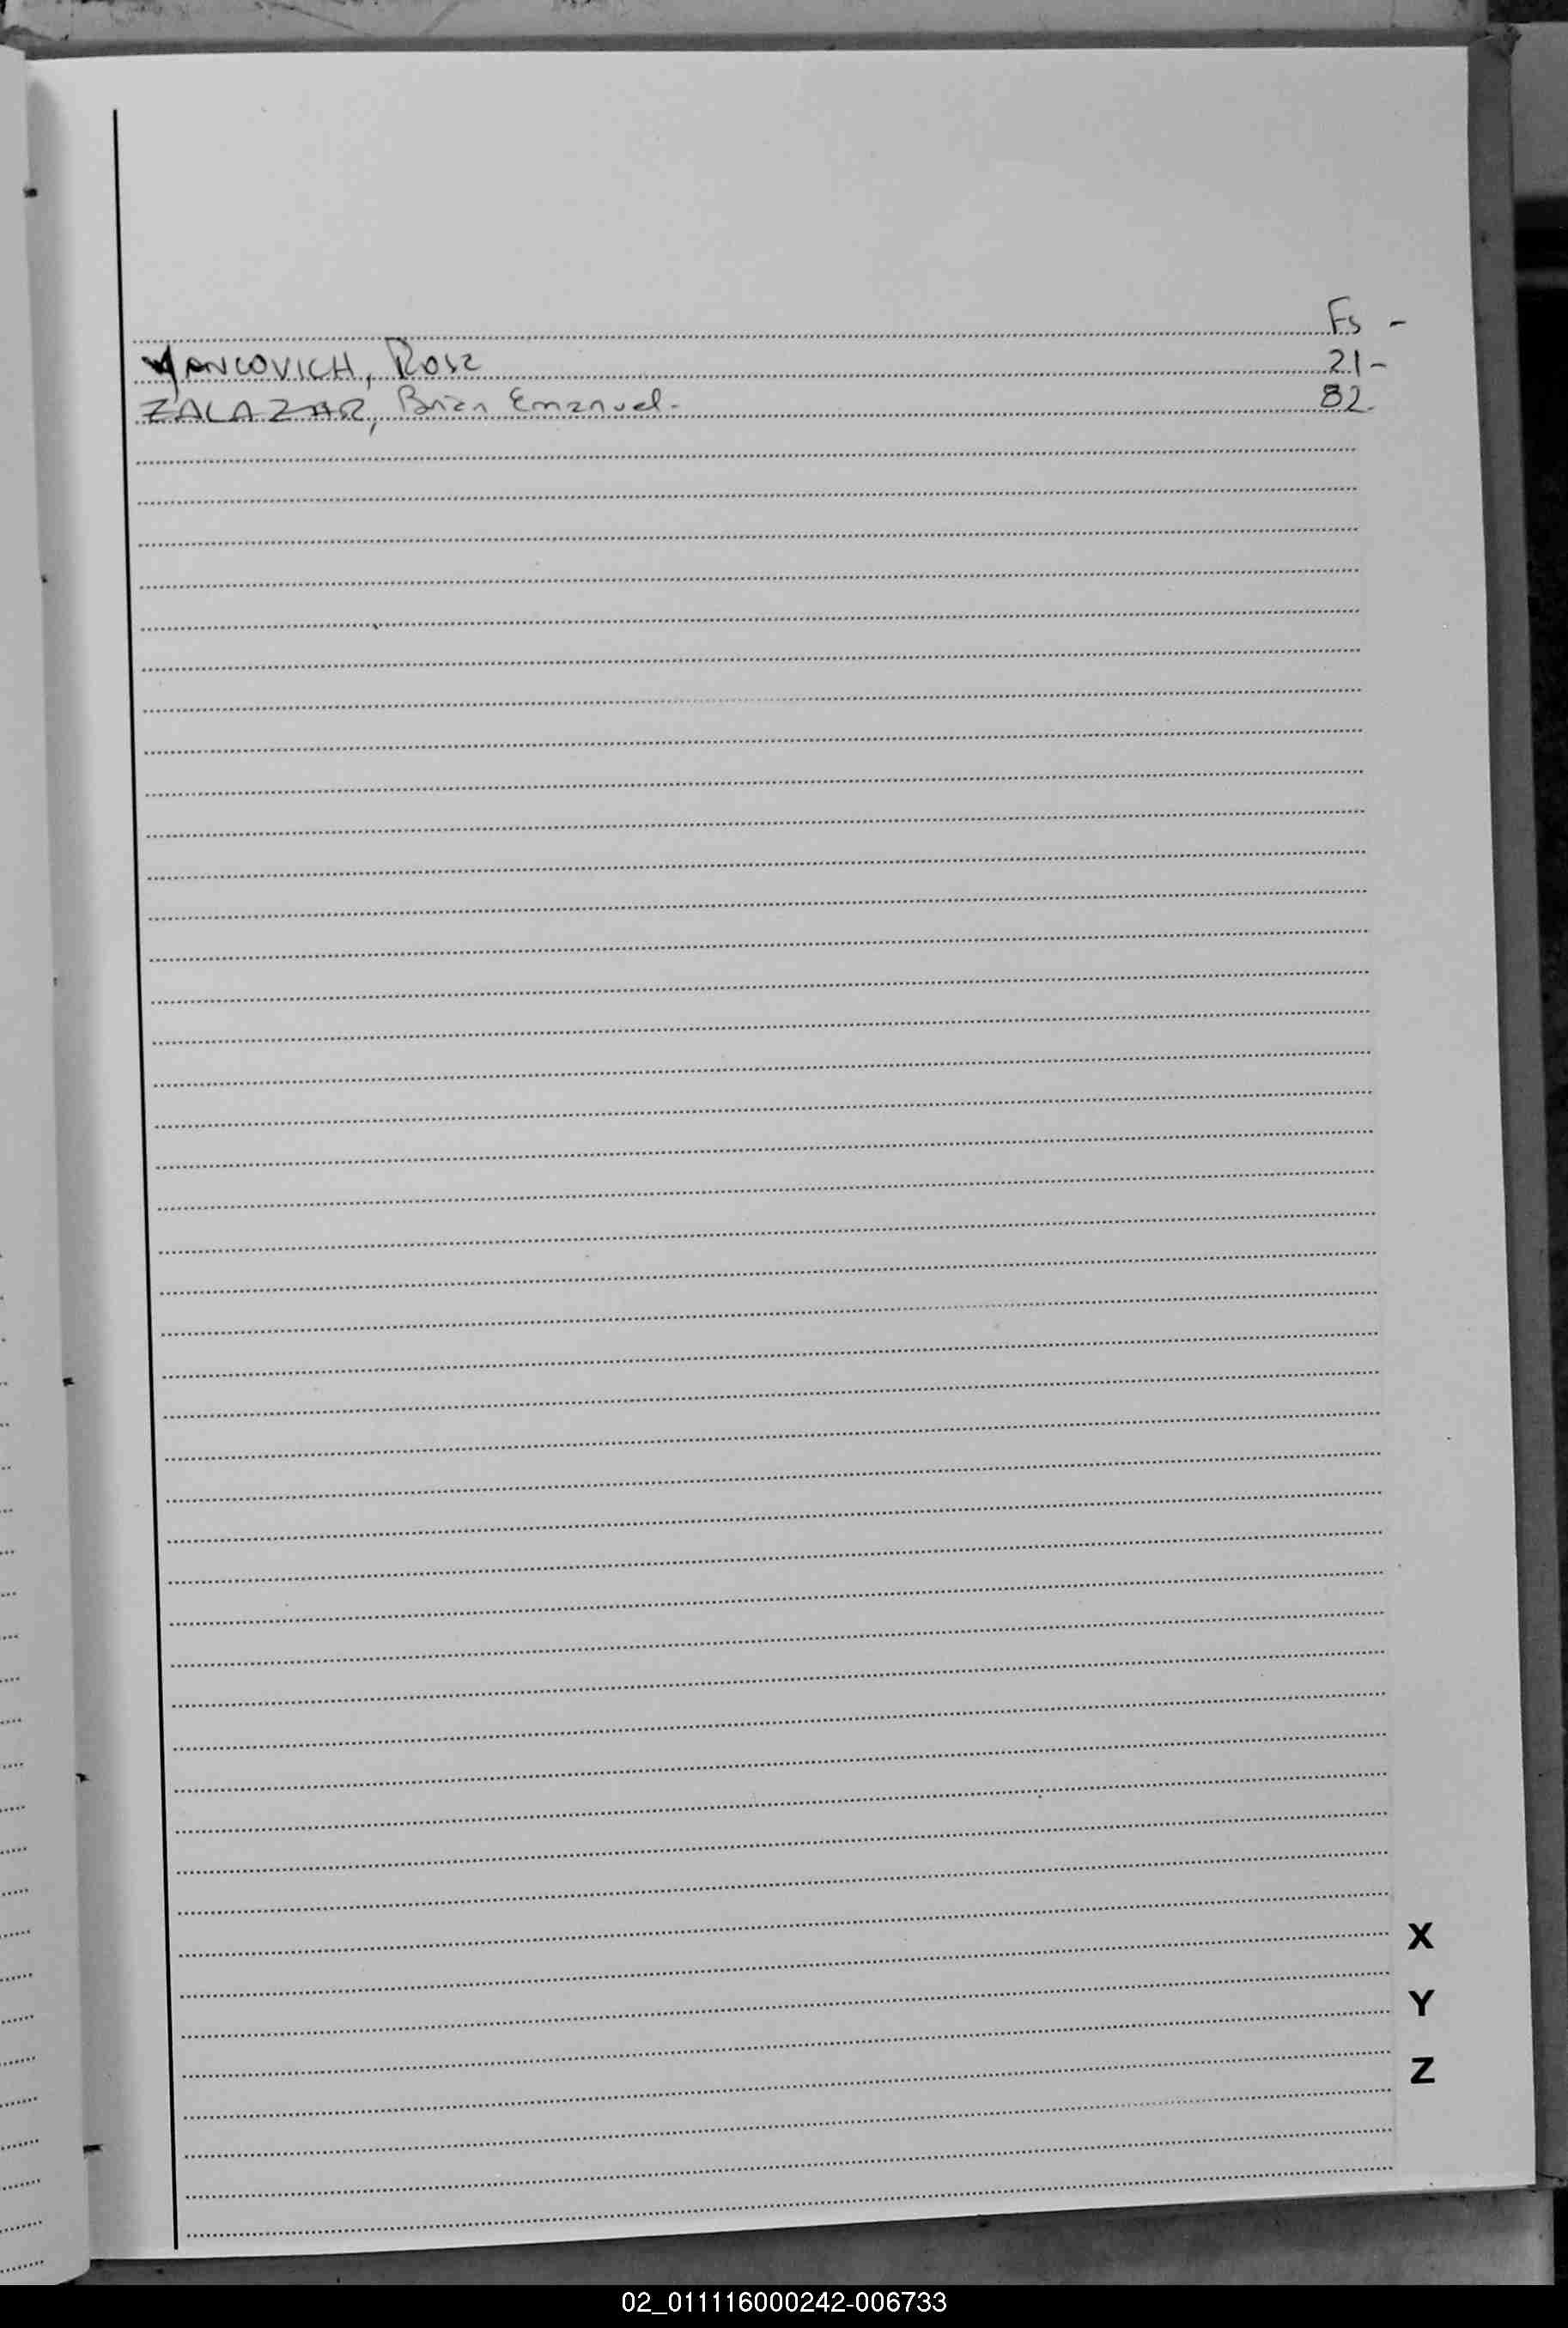 Fs -
YANCOVICH, Rosa 21-
ZALAZAR, Brian Emanuel.- 82.
X
Y
Z
02_011116000242-006733